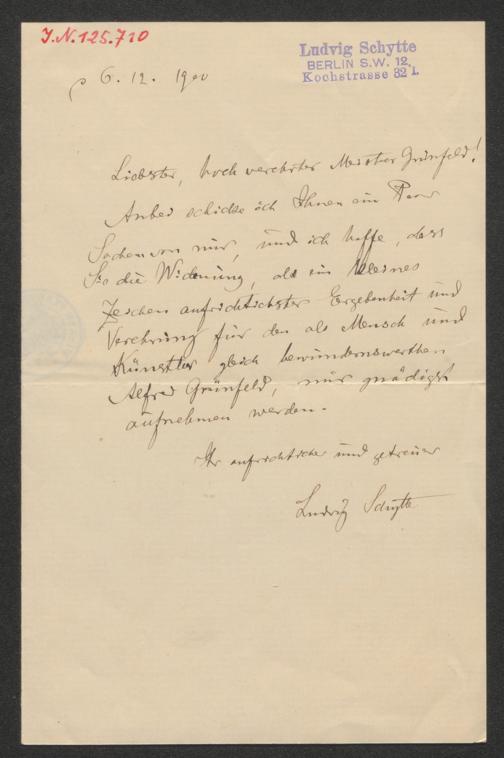 I.N. 125.710
Ludvig Schytte
BERLIN S.W. 12,
Kochstrasse 32 I.
6. 12. 1900
Liebster, hoch verehrter Meister Grünfeld!
Anbei schicke ich Ihnen ein Paar
Sachen von mir, und ich hoffe, dass
Sie die Widmung, als ein kleines
Zeichen aufrichtigster Ergebenheit und
Verehrung für den als Mensch und
Künstler gleich bewundernswerthen
Alfred Grünfeld, mir gnädigst
aufnehmen werden.
Ihr aufrichtiger und getreuer
Ludvig Schytte